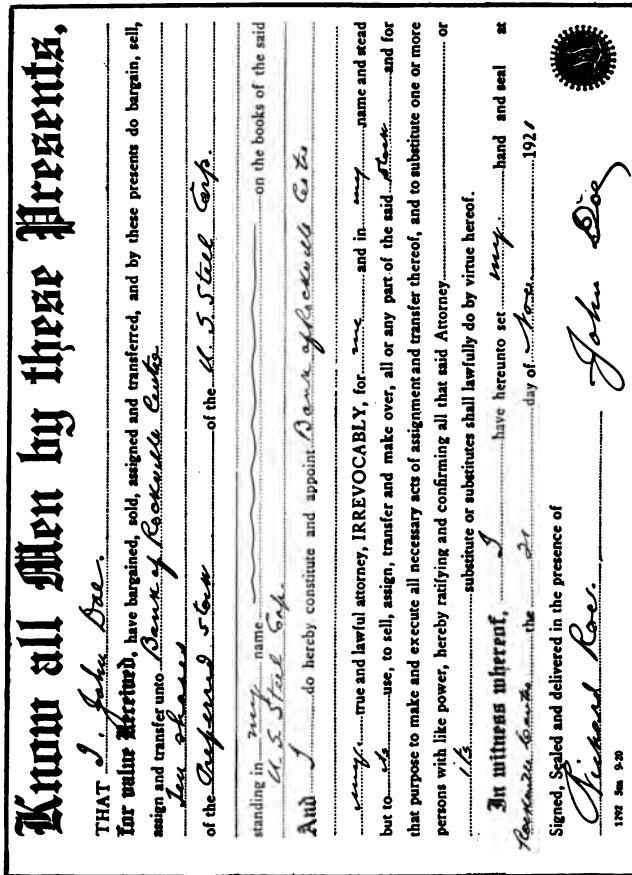 Know all Men by these Presents,
THAT I, John Doe.
For value Received, have bargained, sold, assigned and transferred, and by these presents do bargain, sell,
assign and transfer unto Bank of Rockville Centre
Ten shares
of the Preferred stock of the U.S. Steel Corp.
standing in my name on the books of the said
U.S. Steel Corp.
And I do hereby constitute and appoint Bank of Rockville Centre
my true and lawful attorney, IRREVOCABLY, for me and in my name and stead
but to its use, to sell, assign, transfer and make over, all or any part of the said stock and for
that purpose to make and execute all necessary acts of assignment and transfer thereof, and to substitute one or more
persons with like power, hereby ratifying and confirming all that said Attorney or
its substitute or substitutes shall lawfully do by virtue hereof.
In witness whereof, I have hereunto set my hand and seal at
Rockville Centre the 21 day of Nov. 1921
Signed, Sealed and delivered in the presence of
Richard Roe. John Doe
1292 5m 9-20